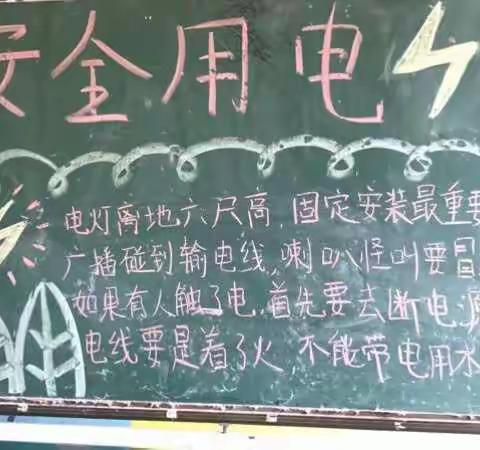 安全用电
电灯离地六尺高,固定安装最重要
广播碰到输电线,喇叭怪叫要冒
如果有人触了电,首先要去断电源
电线要是着了火,不能带电用水